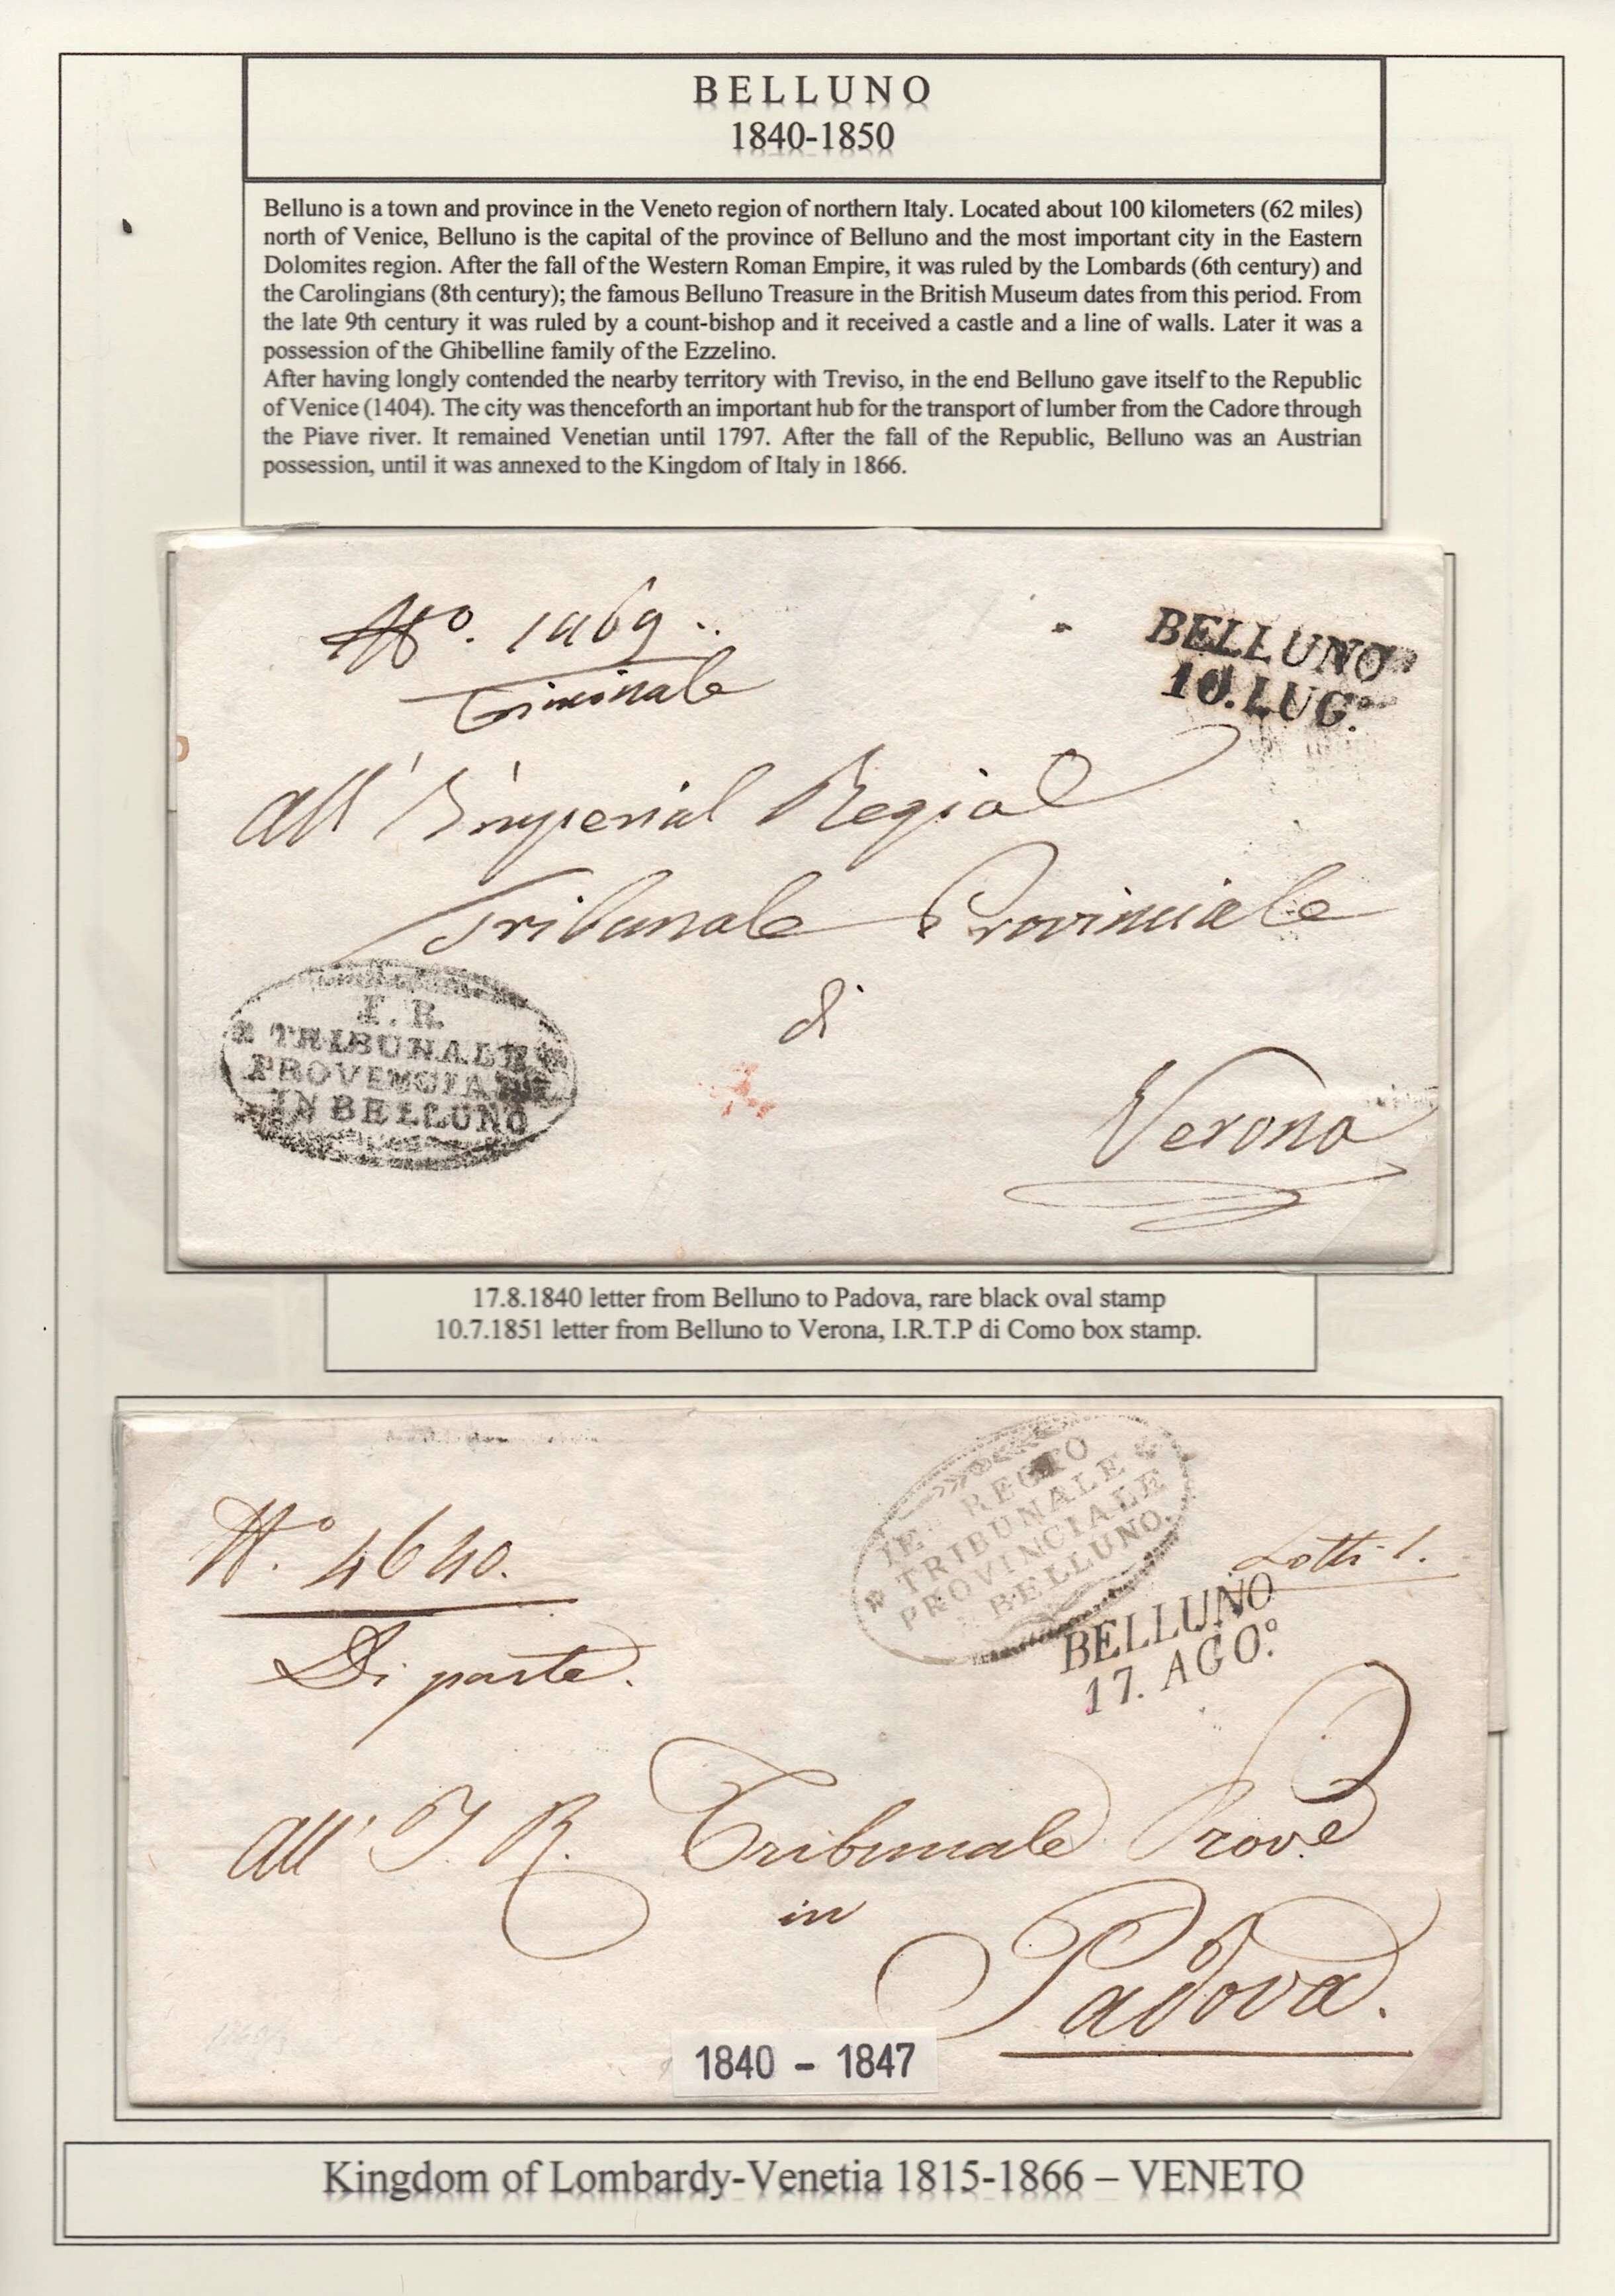 BELLUNO
1840-1850
Belluno is a town and province in the Veneto region of northern Italy. Located about 100 kilometers (62 miles)
north of Venice, Belluno is the capital of the province of Belluno and the most important city in the Eastern
Dolomites region. After the fall of the Western Roman Empire, it was ruled by the Lombards (6th century) and
the Carolingians (8th century); the famous Belluno Treasure in the British Museum dates from this period. From
the late 9th century it was ruled by a count-bishop and it received a castle and a line of walls. Later it was a
possession of the Ghibelline family of the Ezzelino.
After having longly contended the nearby territory with Treviso, in the end Belluno gave itself to the Republic
of Venice (1404). The city was thenceforth an important hub for the transport of lumber from the Cadore through
the Piave river. It remained Venetian until 1797. After the fall of the Republic, Belluno was an Austrian
possession, until it was annexed to the Kingdom of Italy in 1866.
No.
Criminale
BELLUNO
10. LUG.º
All' Imperial Regial
Tribunale Provinciale
di
Verona
I. R.
TRIBUNALE
PROVINCIALE
IN BELLUNO
17.8.1840 letter from Belluno to Padova, rare black oval stamp
10.7.1851 letter from Belluno to Verona, I.R.T.P di Como box stamp.
Nº. 4640.
Di parte.
REGIO
TRIBUNALE
PROVINCIALE
BELLUNO
BELLUNO
17. AGO.º
All' I. R. Tribunale Prov.e
in
Padova.
1840 - 1847
Kingdom of Lombardy-Venetia 1815-1866 – VENETO